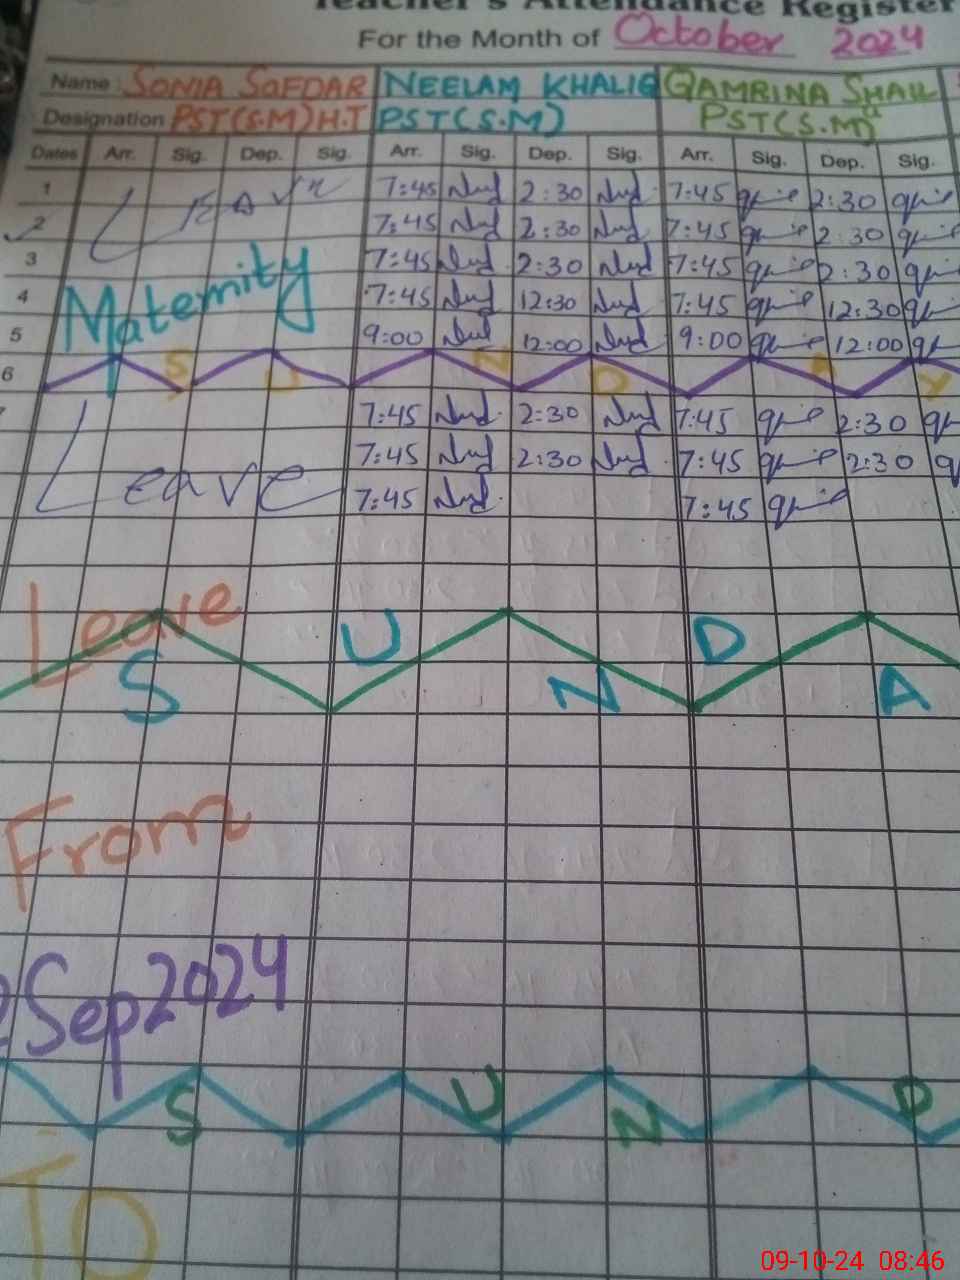 Teacher's Attendance Register
For the Month of October 2024
Name: SONIA SAFDAR NEELAM KHALIQ QAMRINA SHAIL
Designation PST(S.M)H.T PST(S.M) PST(S.M)
Dates Arr. Sig. Dep. Sig. Arr. Sig. Dep. Sig. Arr. Sig. Dep. Sig.
1 Leave 7:45 2:30 7:45 2:30
2 7:45 2:30 7:45 2:30
3 7:45 2:30 7:45 2:30
4 Maternity 7:45 12:30 7:45 12:30
5 9:00 12:00 9:00 12:00
6 S U N D A Y
7 7:45 2:30 7:45 2:30
Leave 7:45 2:30 7:45 2:30
7:45 7:45
Leave
S U N D A
From
Sep 2024
S U N D
To
09-10-24 08:46